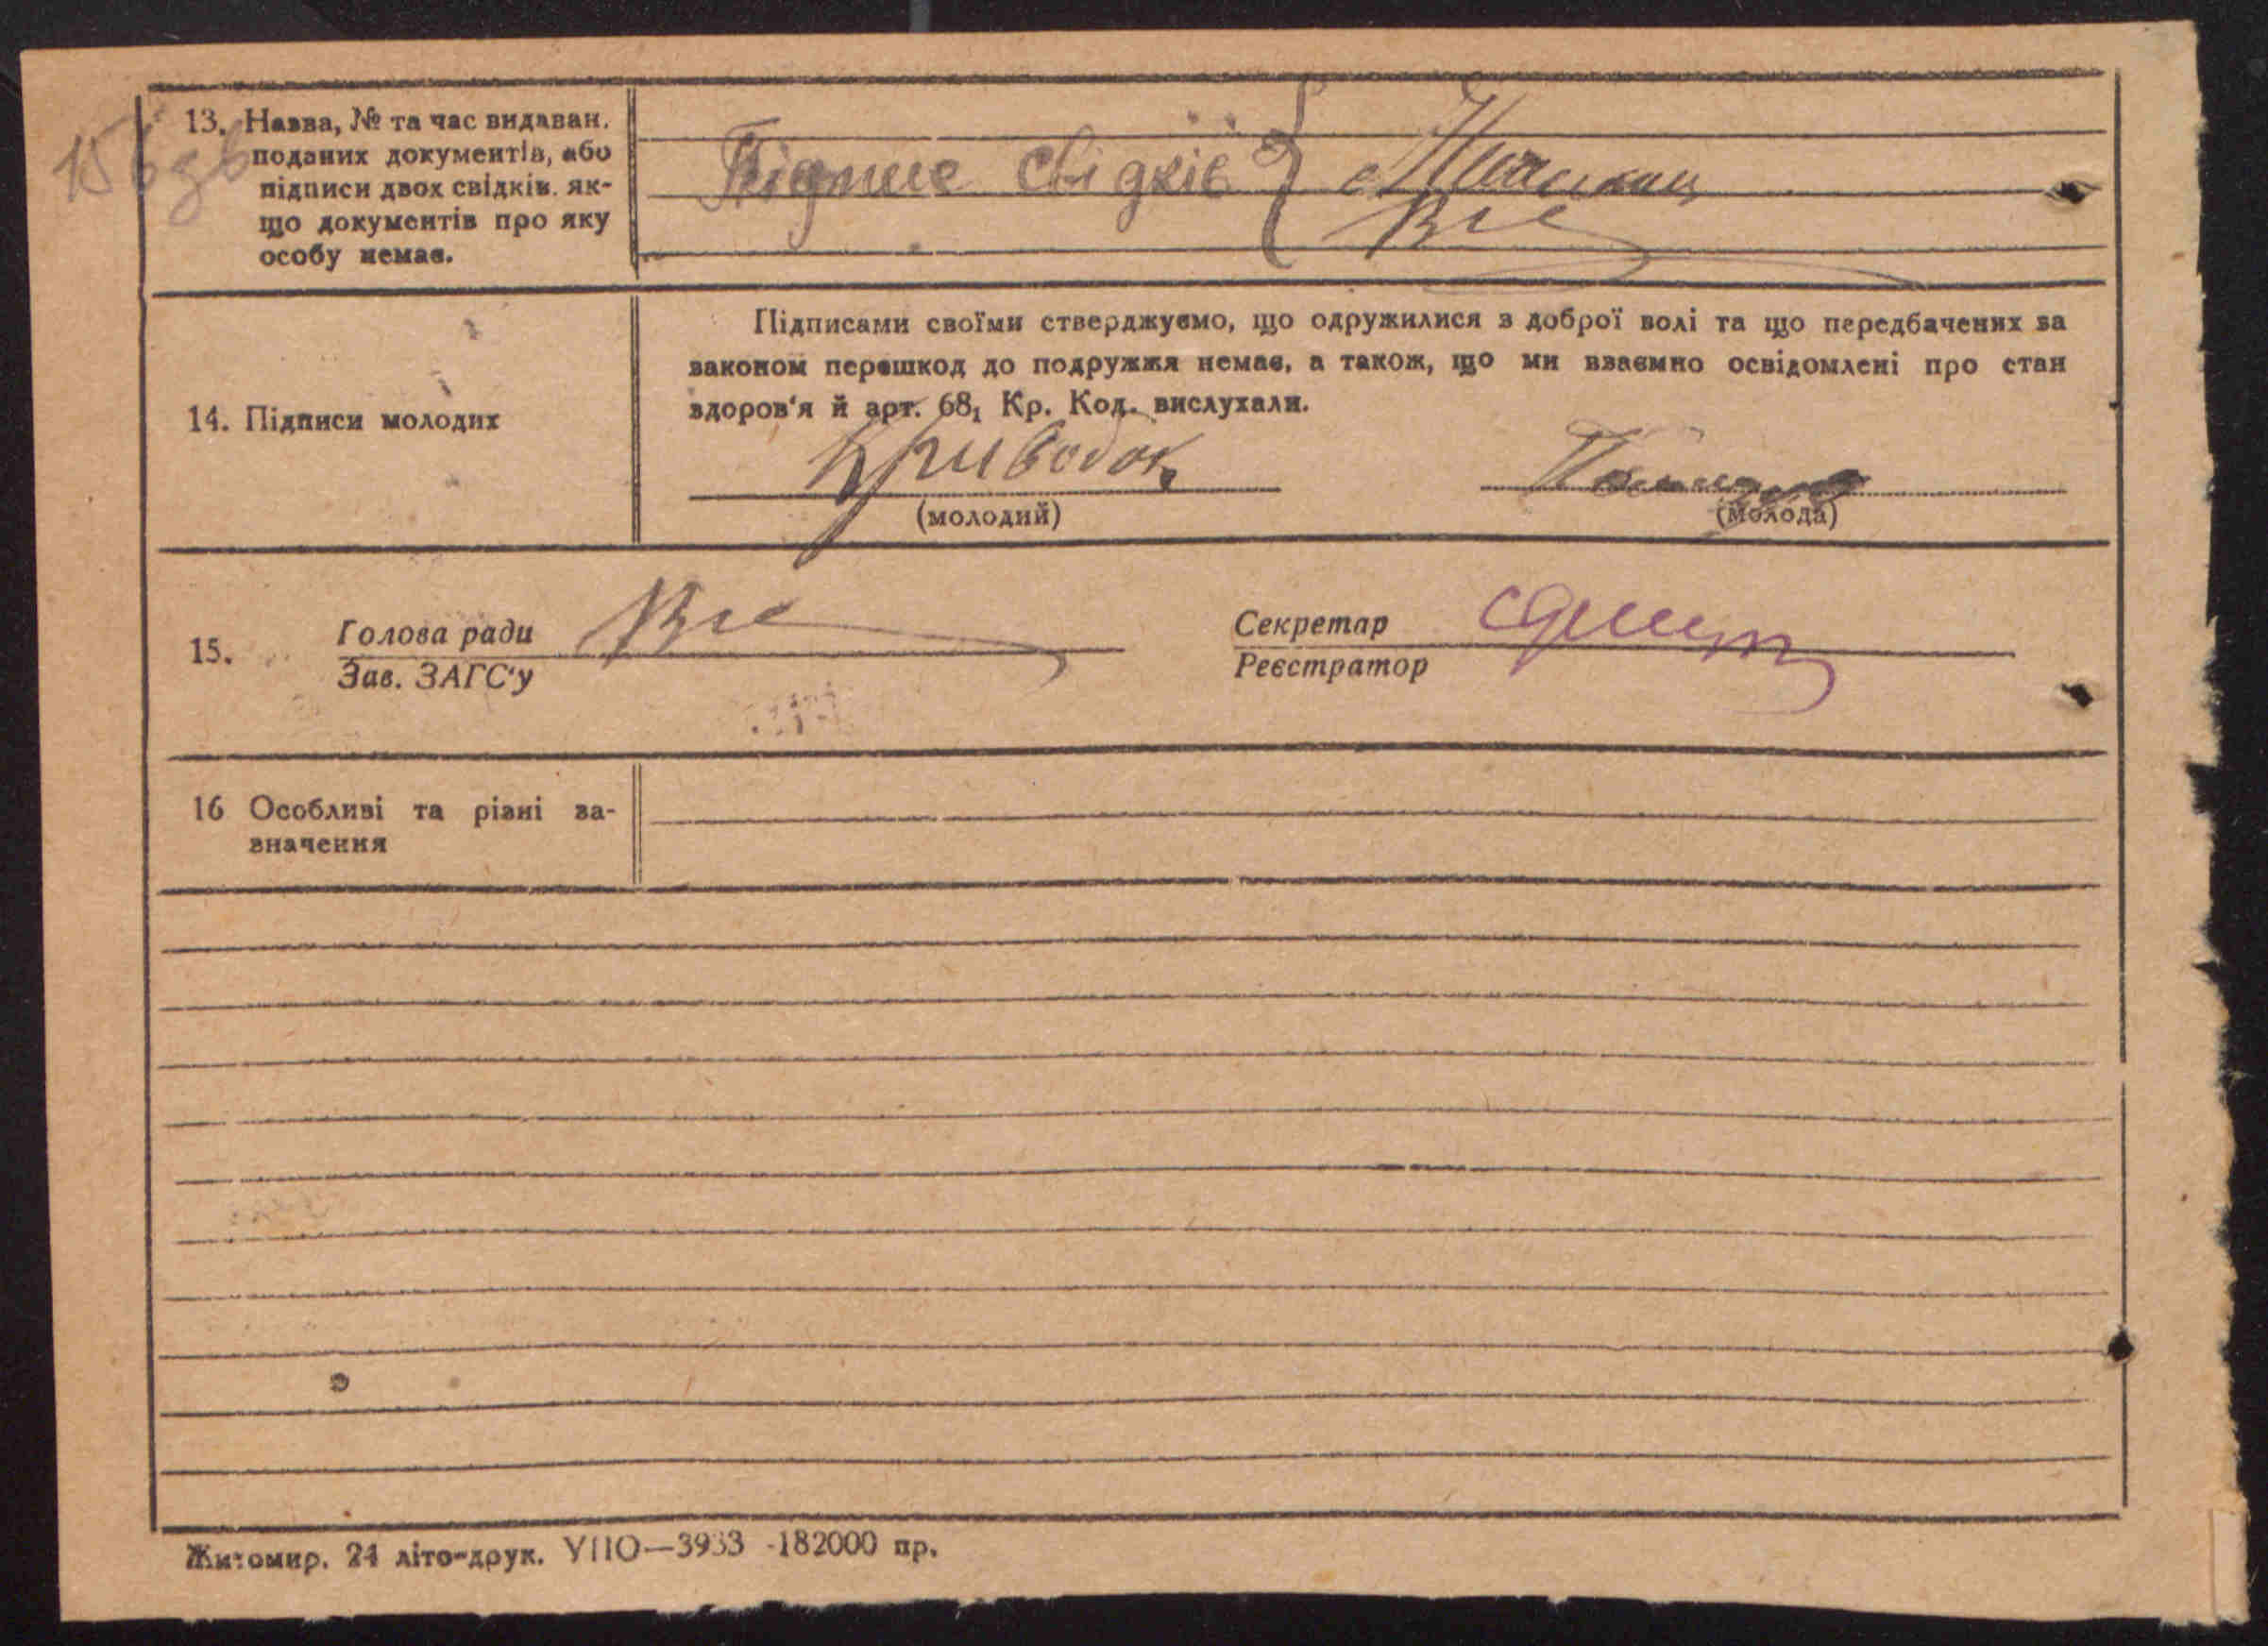 13. Назва, № та час видаван.
поданих документів, або
підписи двох свідків. як-
що документів про яку
особу немає.
Підписе свідків
14. Підписи молодих
Підписами своїми стверджуємо, що одружилися з доброї волі та що передбачених за
законом перешкод до подружжя немає, а також, що ми взаємно освідомлені про стан
здоров'я й арт. 68₁ Кр. Код. вислухали.
(молодий)
(молода)
15.
Голова ради
Зав. ЗАГС'у
Секретар
Реєстратор
16 Особливі та різні за-
значення
Житомир. 24 літо-друк. УПО—3933 -182000 пр.